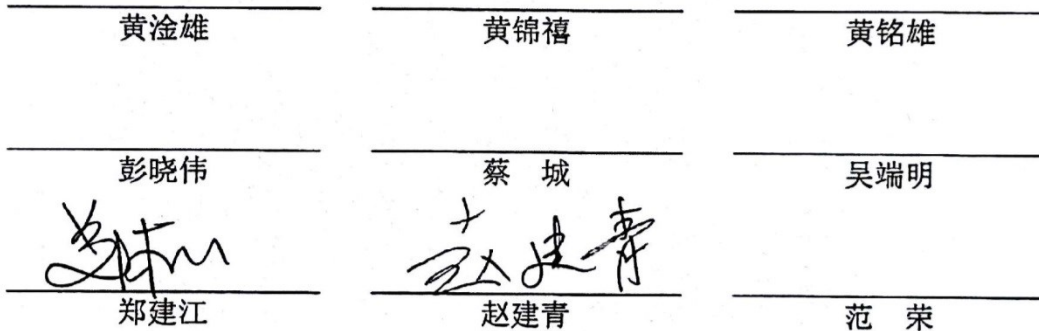 黄淦雄 黄锦禧 黄铭雄
彭晓伟 蔡 城 吴端明
赵建青
郑建江 赵建青 范 荣